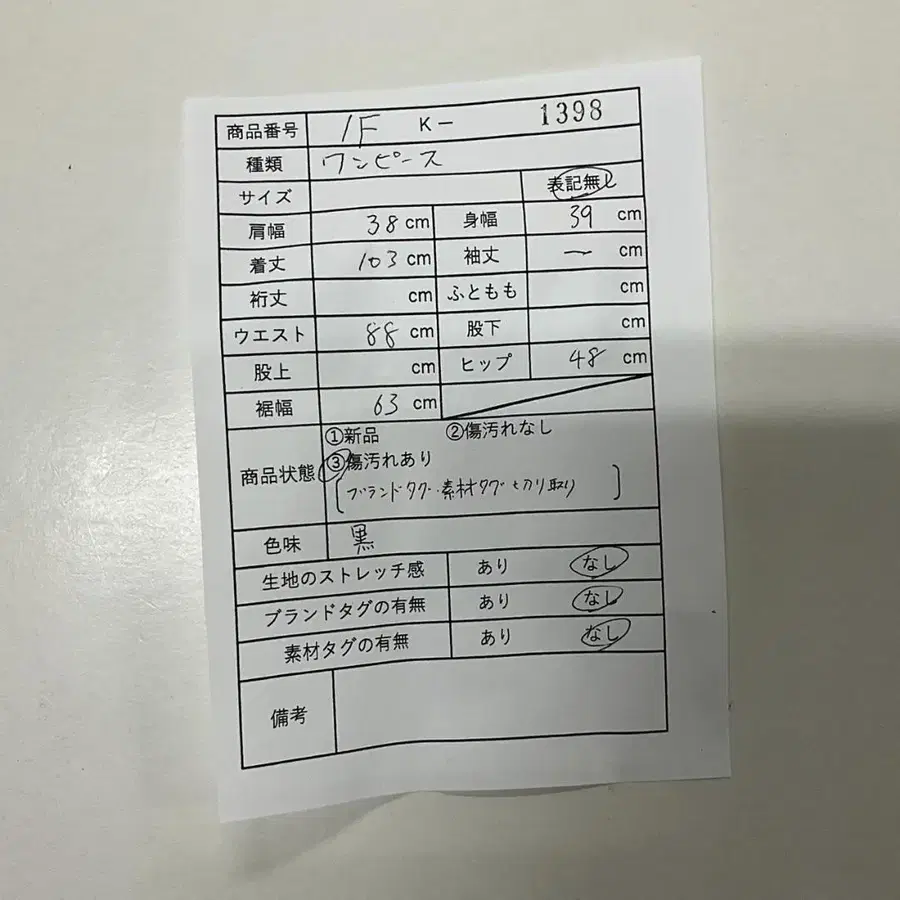 商品番号 1F K- 1398
種類 ワンピース
サイズ 表記無し
肩幅 38 cm 身幅 39 cm
着丈 103 cm 袖丈 ー cm
裄丈 cm ふともも cm
ウエスト 88 cm 股下 cm
股上 cm ヒップ 48 cm
裾幅 63 cm
商品状態 ①新品 ②傷汚れなし
③傷汚れあり
[ブランドタグ・素材タグ切り取り]
色味 黒
生地のストレッチ感 あり なし
ブランドタグの有無 あり なし
素材タグの有無 あり なし
備考